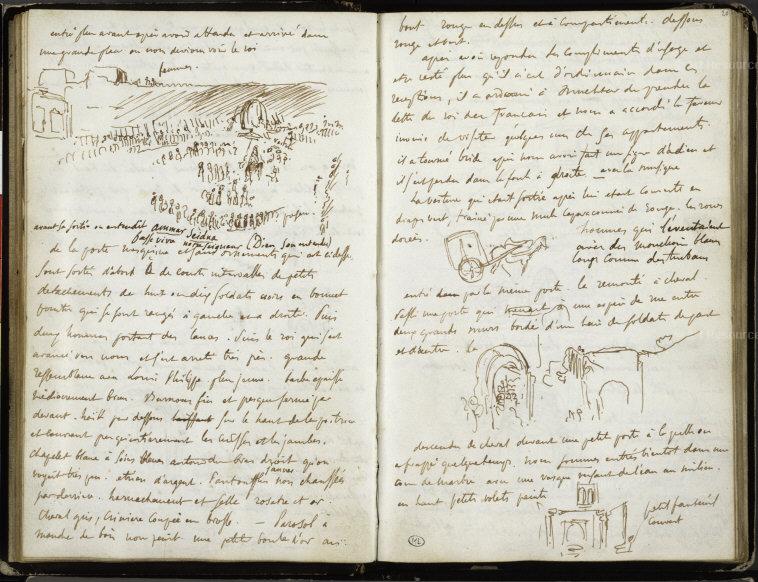 entré peu avant après avoir attendu et arrivé dans
une grande place où nous devions voir le roi
femmes.
avant sa sortie on entendit ammar Seidna
passe vive notre seigneur (Dieu son entendu)
de la porte mesquine et sans ornements qui est ci dessus.
Sont sortis d'abord à de courts intervalles de petits
détachements de huit ou dix soldats noirs en bonnet
pointu qui se sont rangés à gauche et à droite. Puis
deux hommes portant des lances. Puis le roi qui s'est
avancé vers nous et s'est arrêté très près. grande
ressemblance avec Louis Philippe plus jeune. barbe épaisse
médiocrement brun. Burnous fin et presque fermé par
devant. haïk par dessous sur le haut de la poitrine
et couvrant presqu'entièrement les cuisses et les jambes.
Chapelet blanc à soies bleues autour du bras droit qu'on
voyait très peu. étriers d'argent. Pantoufles jaunes non chaussées
par derrière. harnachement et selle rosâtre et or.
Cheval gris, crinière coupée en brosse. — Parasol à
manche de bois non peint une petite boule d'or au
bout rouge en dessus et à compartiments. dessous
rouge et vert.
après avoir répondu des compliments d'usage et
être resté plus qu'il n'est d'ordinaire dans les
réceptions, il a ordonné à Muchtar de prendre la
lettre du roi des Français et nous a accordé la faveur
inouïe de visiter quelques uns de ses appartements.
il a tourné bride après nous avoir fait un signe d'adieu et
il s'est perdu dans la foule à droite — avec la musique
La voiture qui était sortie après lui était couverte en
drap vert traîné par une mule caparaçonnée de rouge. les roues
dorées.
hommes qui l'éventaient
avec des mouchoirs blancs
longs comme des turbans
entré par la même porte. là remonté à cheval
passé une porte qui menait à une espèce de rue entre
deux grands murs bordée d'une haie de soldats de part
et d'autre.
descendu de cheval devant une petite porte à laquelle on
a frappé quelque temps. nous sommes entrés bientôt dans une
cour de marbre avec une vasque versant de l'eau au milieu.
en haut petits volets peints
petit fauteuil
couvert